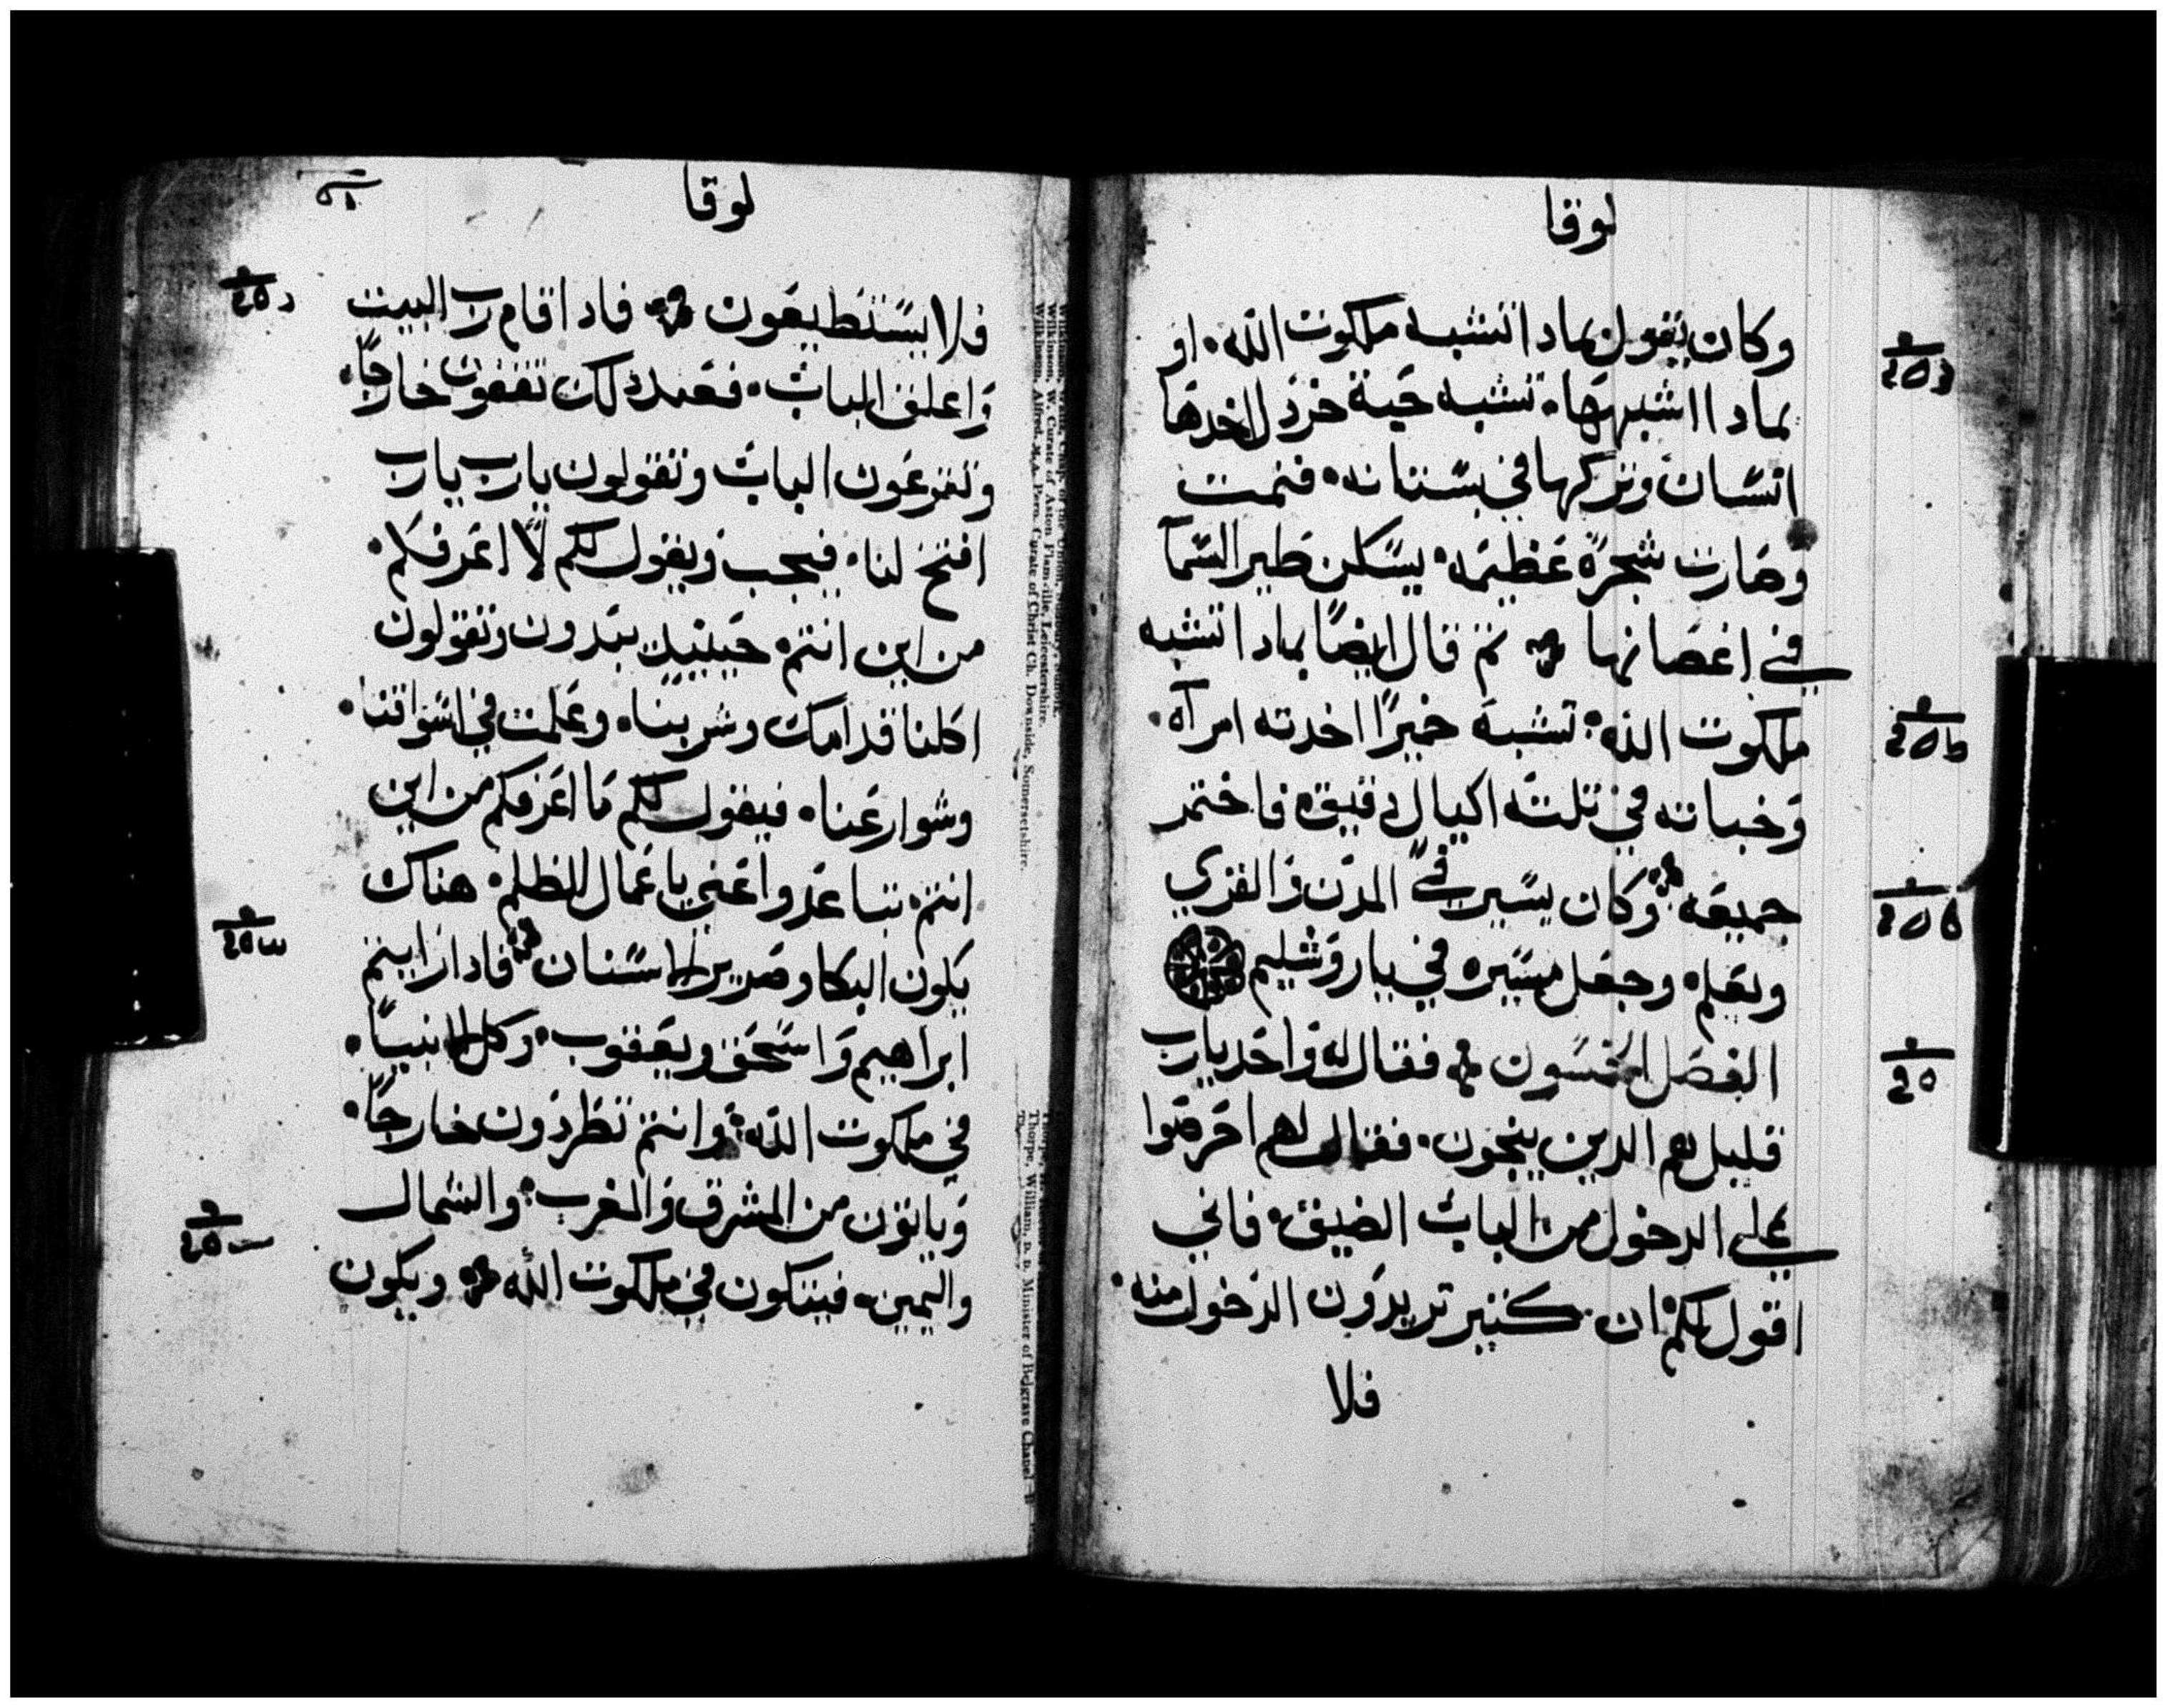 لوقا
وكان يقول بمادا تشبه ملكوت الله. او
بمادا اشبهها. تشبه حبة خردل اخدها
انسان وتركها في بستانه. فنمت
وصارت شجرة عظيمه. يسكن طير السمآ
في اغصانها ثم قال ايضًا بمادا تشبه
ملكوت الله. تشبه خميرًا اخدته امرآه.
وخباته في تلته اكيال دقيق فاختمر
جميعه. وكان يسير في المدن والقري
ويعلم. وجعل مسيره في ياروشليم
الفصل الخمسون فقال له واحد يارب
قليل هم الدين ينجون. فقال لهم احرصوا
علي الدخول من الباب الضيق. فاني
اقول لكم ان كثير تريدون الدخول منه.
فلا
لوقا
فلا يستطيعون فادا قام رب البيت
واغلق الباب. فعند دلك تقفون خارجًا.
وتقرعون الباب وتقولون يارب يارب
افتح لنا. فيجب ويقول لكم لا اعرفكم.
من اين انتم. حينيد تبدون وتقولون
اكلنا قدامك وشربنا. وعلمت في اسواقنا.
وشوارعنا. فيقول لكم ما اعرفكم من اين
انتم. تباعدوا عني يا عمال الظلم. هناك
يكون البكا وصرير الاسنان فادا رايتم
ابراهيم واسحق ويعقوب. وكل الانبيا.
في ملكوت الله. وانتم تطردون خارجًا.
وياتون من المشرق والمغرب. والشمال
واليمين. فيتكون في ملكوت الله ويكون